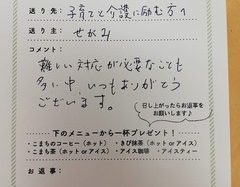 送り先：子育てと介護に励む方へ
送り主：せがみ
コメント：
難しい対応が必要なことも
多い中、いつもありがとう
ございます。
召し上がったらお返事を
お願いします♪
下のメニューから一杯プレゼント！
・こまちのコーヒー（ホット）・きび抹茶（ホット or アイス）
・こまち茶（ホット or アイス）・アイス珈琲・アイスティー
お返事：